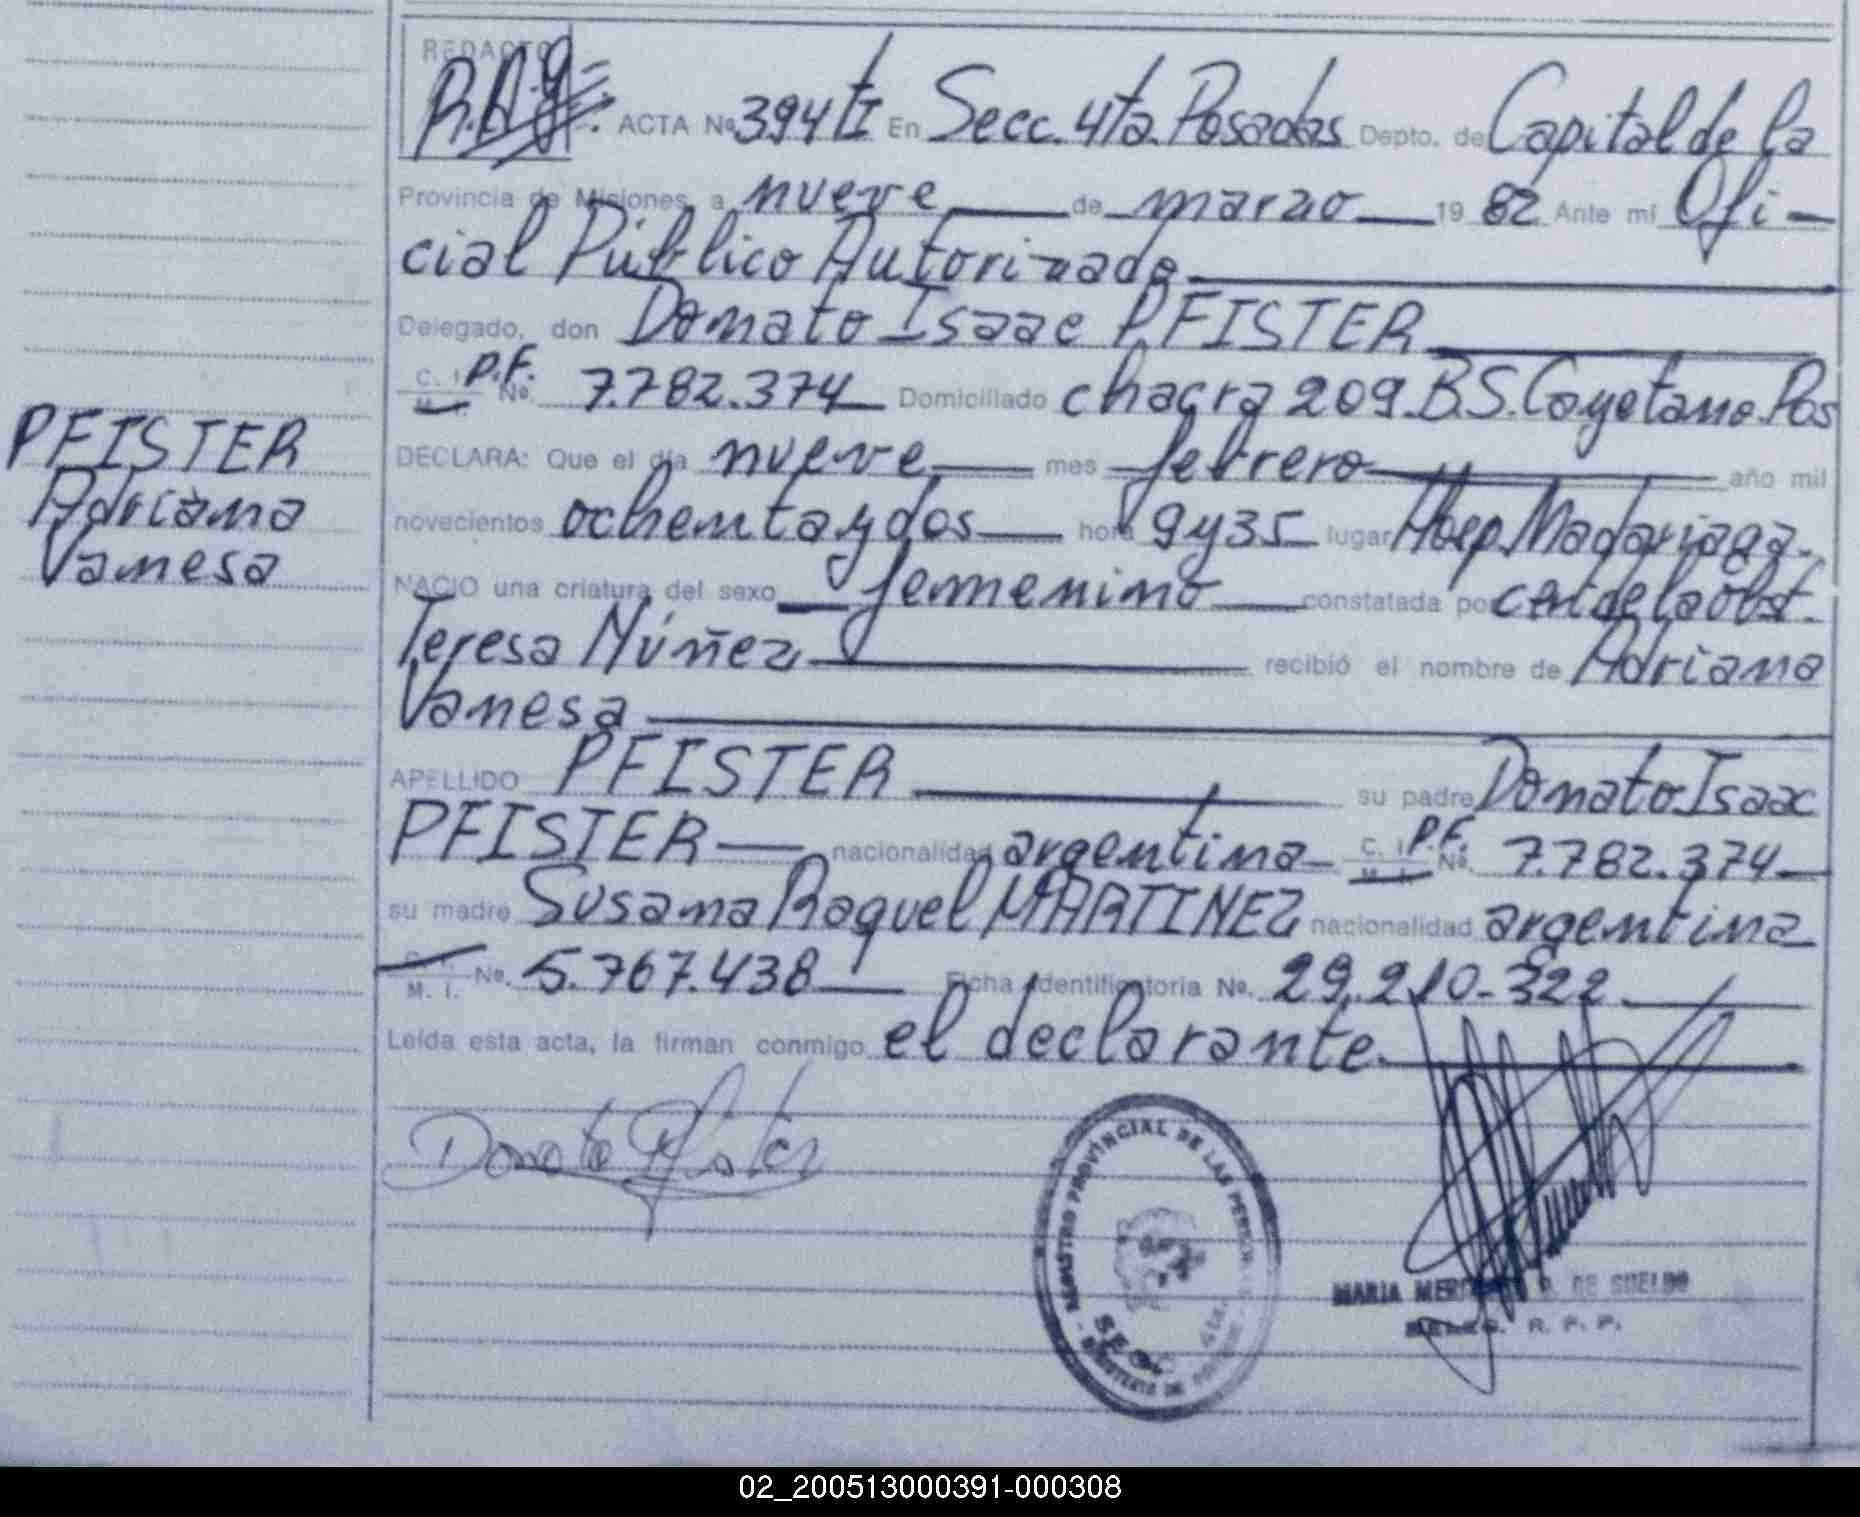 REDACTO
ACTA Nº 394 tI En Secc. 4ta. Posadas Depto. de Capital de la
Provincia de Misiones, a nueve de marzo 19 82 Ante mí Ofi-
cial Público Autorizado
Delegado, don Donato Isaac PFISTER
C. I. P.F.
M. I. Nº. 7.782.374 Domiciliado chacra 209.B.S.Cayetano.Pos
PFISTER
Adriana
Vanesa
DECLARA: Que el día nueve mes febrero año mil
novecientos ochenta y dos hora 9y35 lugar Hosp. Madariaga.
NACIO una criatura del sexo femenino constatada por cert de la obst.
Teresa Núñez recibió el nombre de Adriana
Vanesa
APELLIDO PFISTER su padre Donato Isaac
PFISTER nacionalidad argentina C. I. P.F. M. I. Nº. 7.782.374
su madre Susana Raquel MARTINEZ nacionalidad argentina
C. I.
M. I. Nº. 5.767.438 Ficha Identificatoria Nº. 29.210.322
Leída esta acta, la firman conmigo el declarante.
Donato Pfister
REGISTRO PROVINCIAL DE LAS PERSONAS
SECC 4ta.
MARIA DE SUELDO
DELEG. R. P. P.
02_200513000391-000308